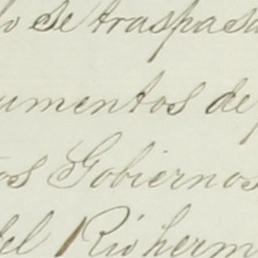 o se traspasa
umentos de
os Gobiernos
del Rio herm